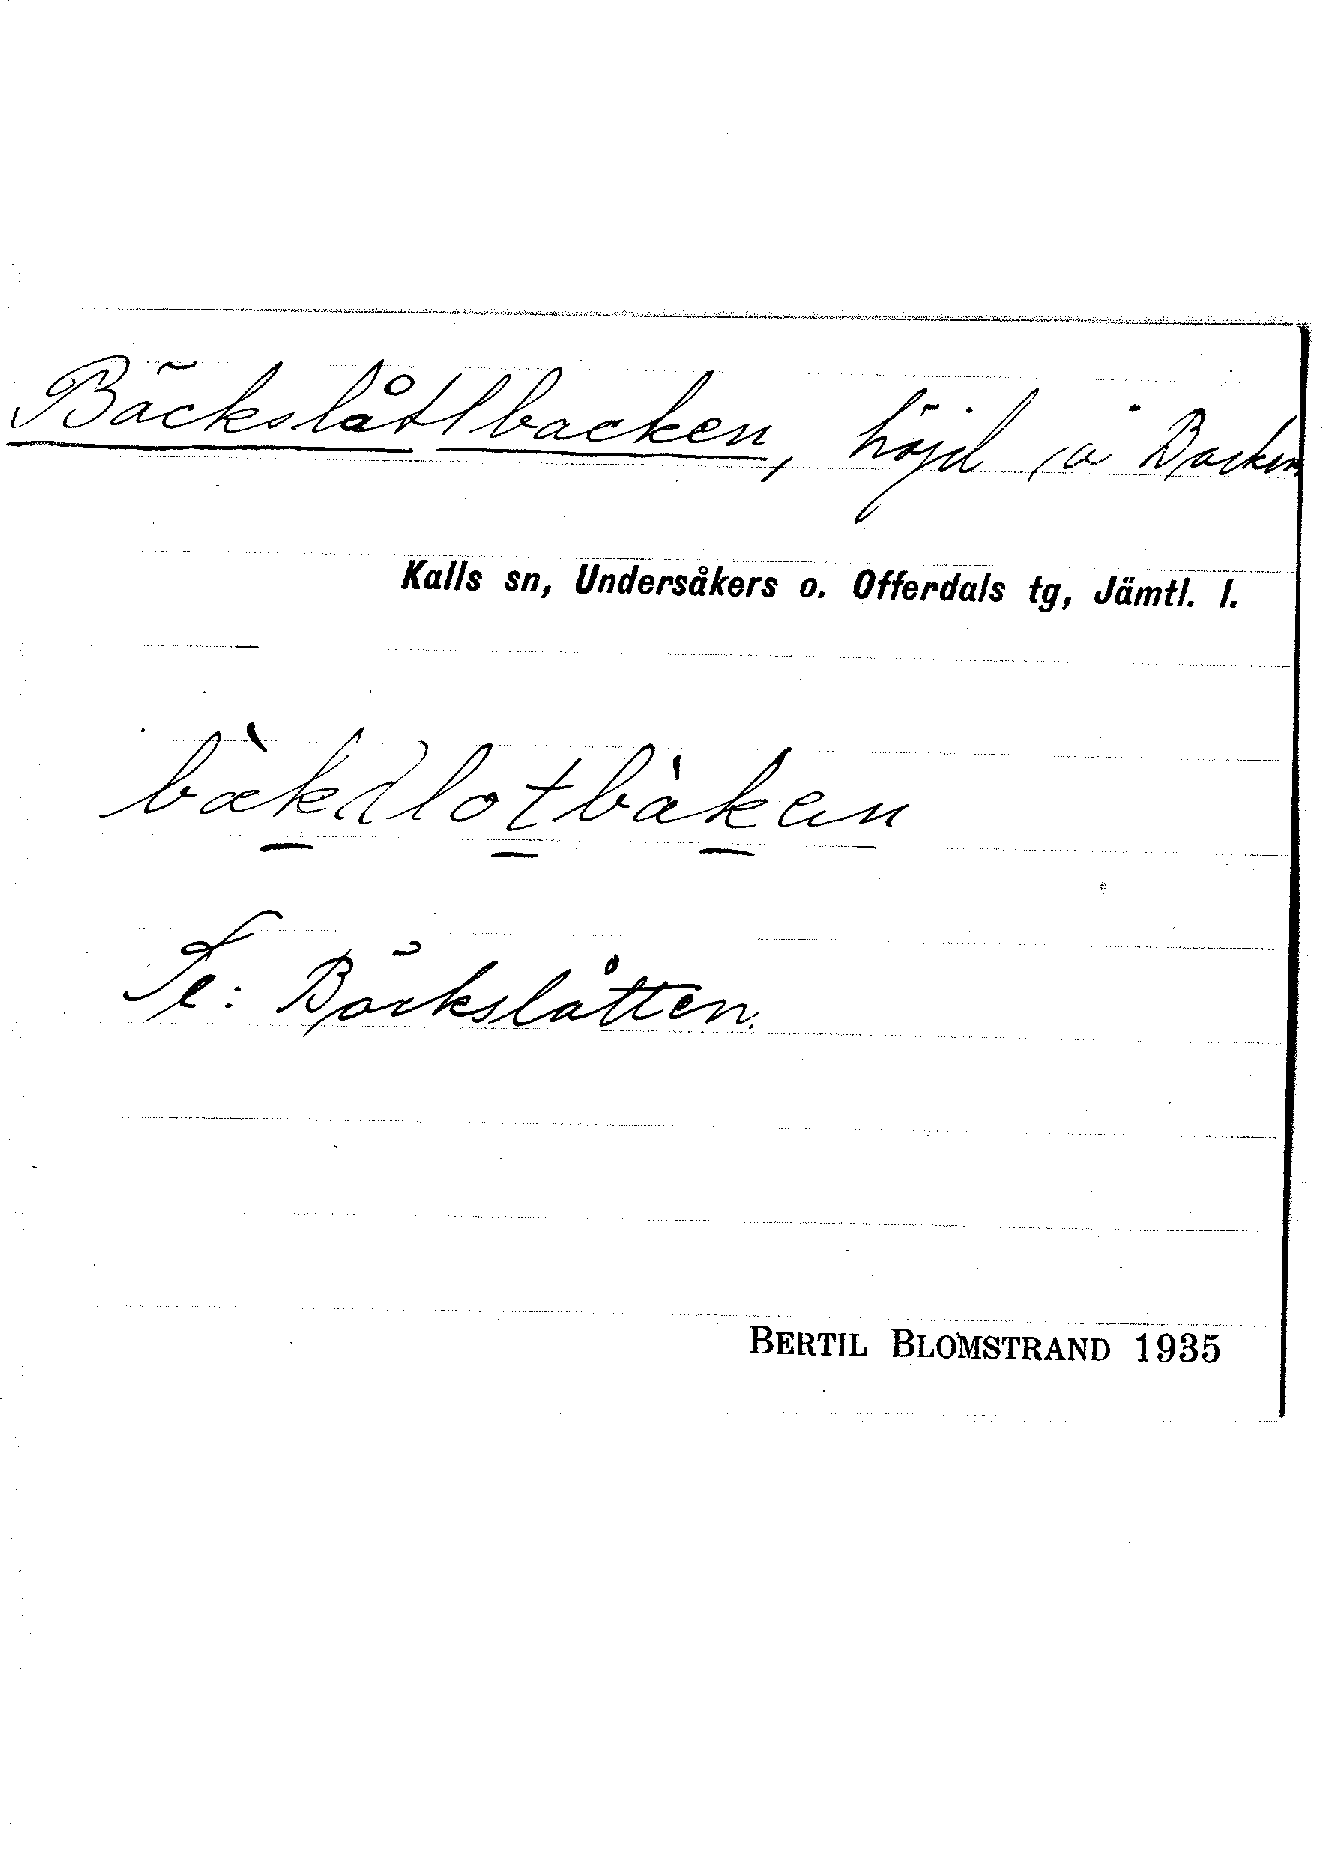 Bäckslåttbacken, höjd, å Backen
Kalls sn, Undersåkers o. Offerdals tg, Jämtl. l.
bækslotbàkan
Se: Bäckslåtten.
BERTIL BLOMSTRAND 1935